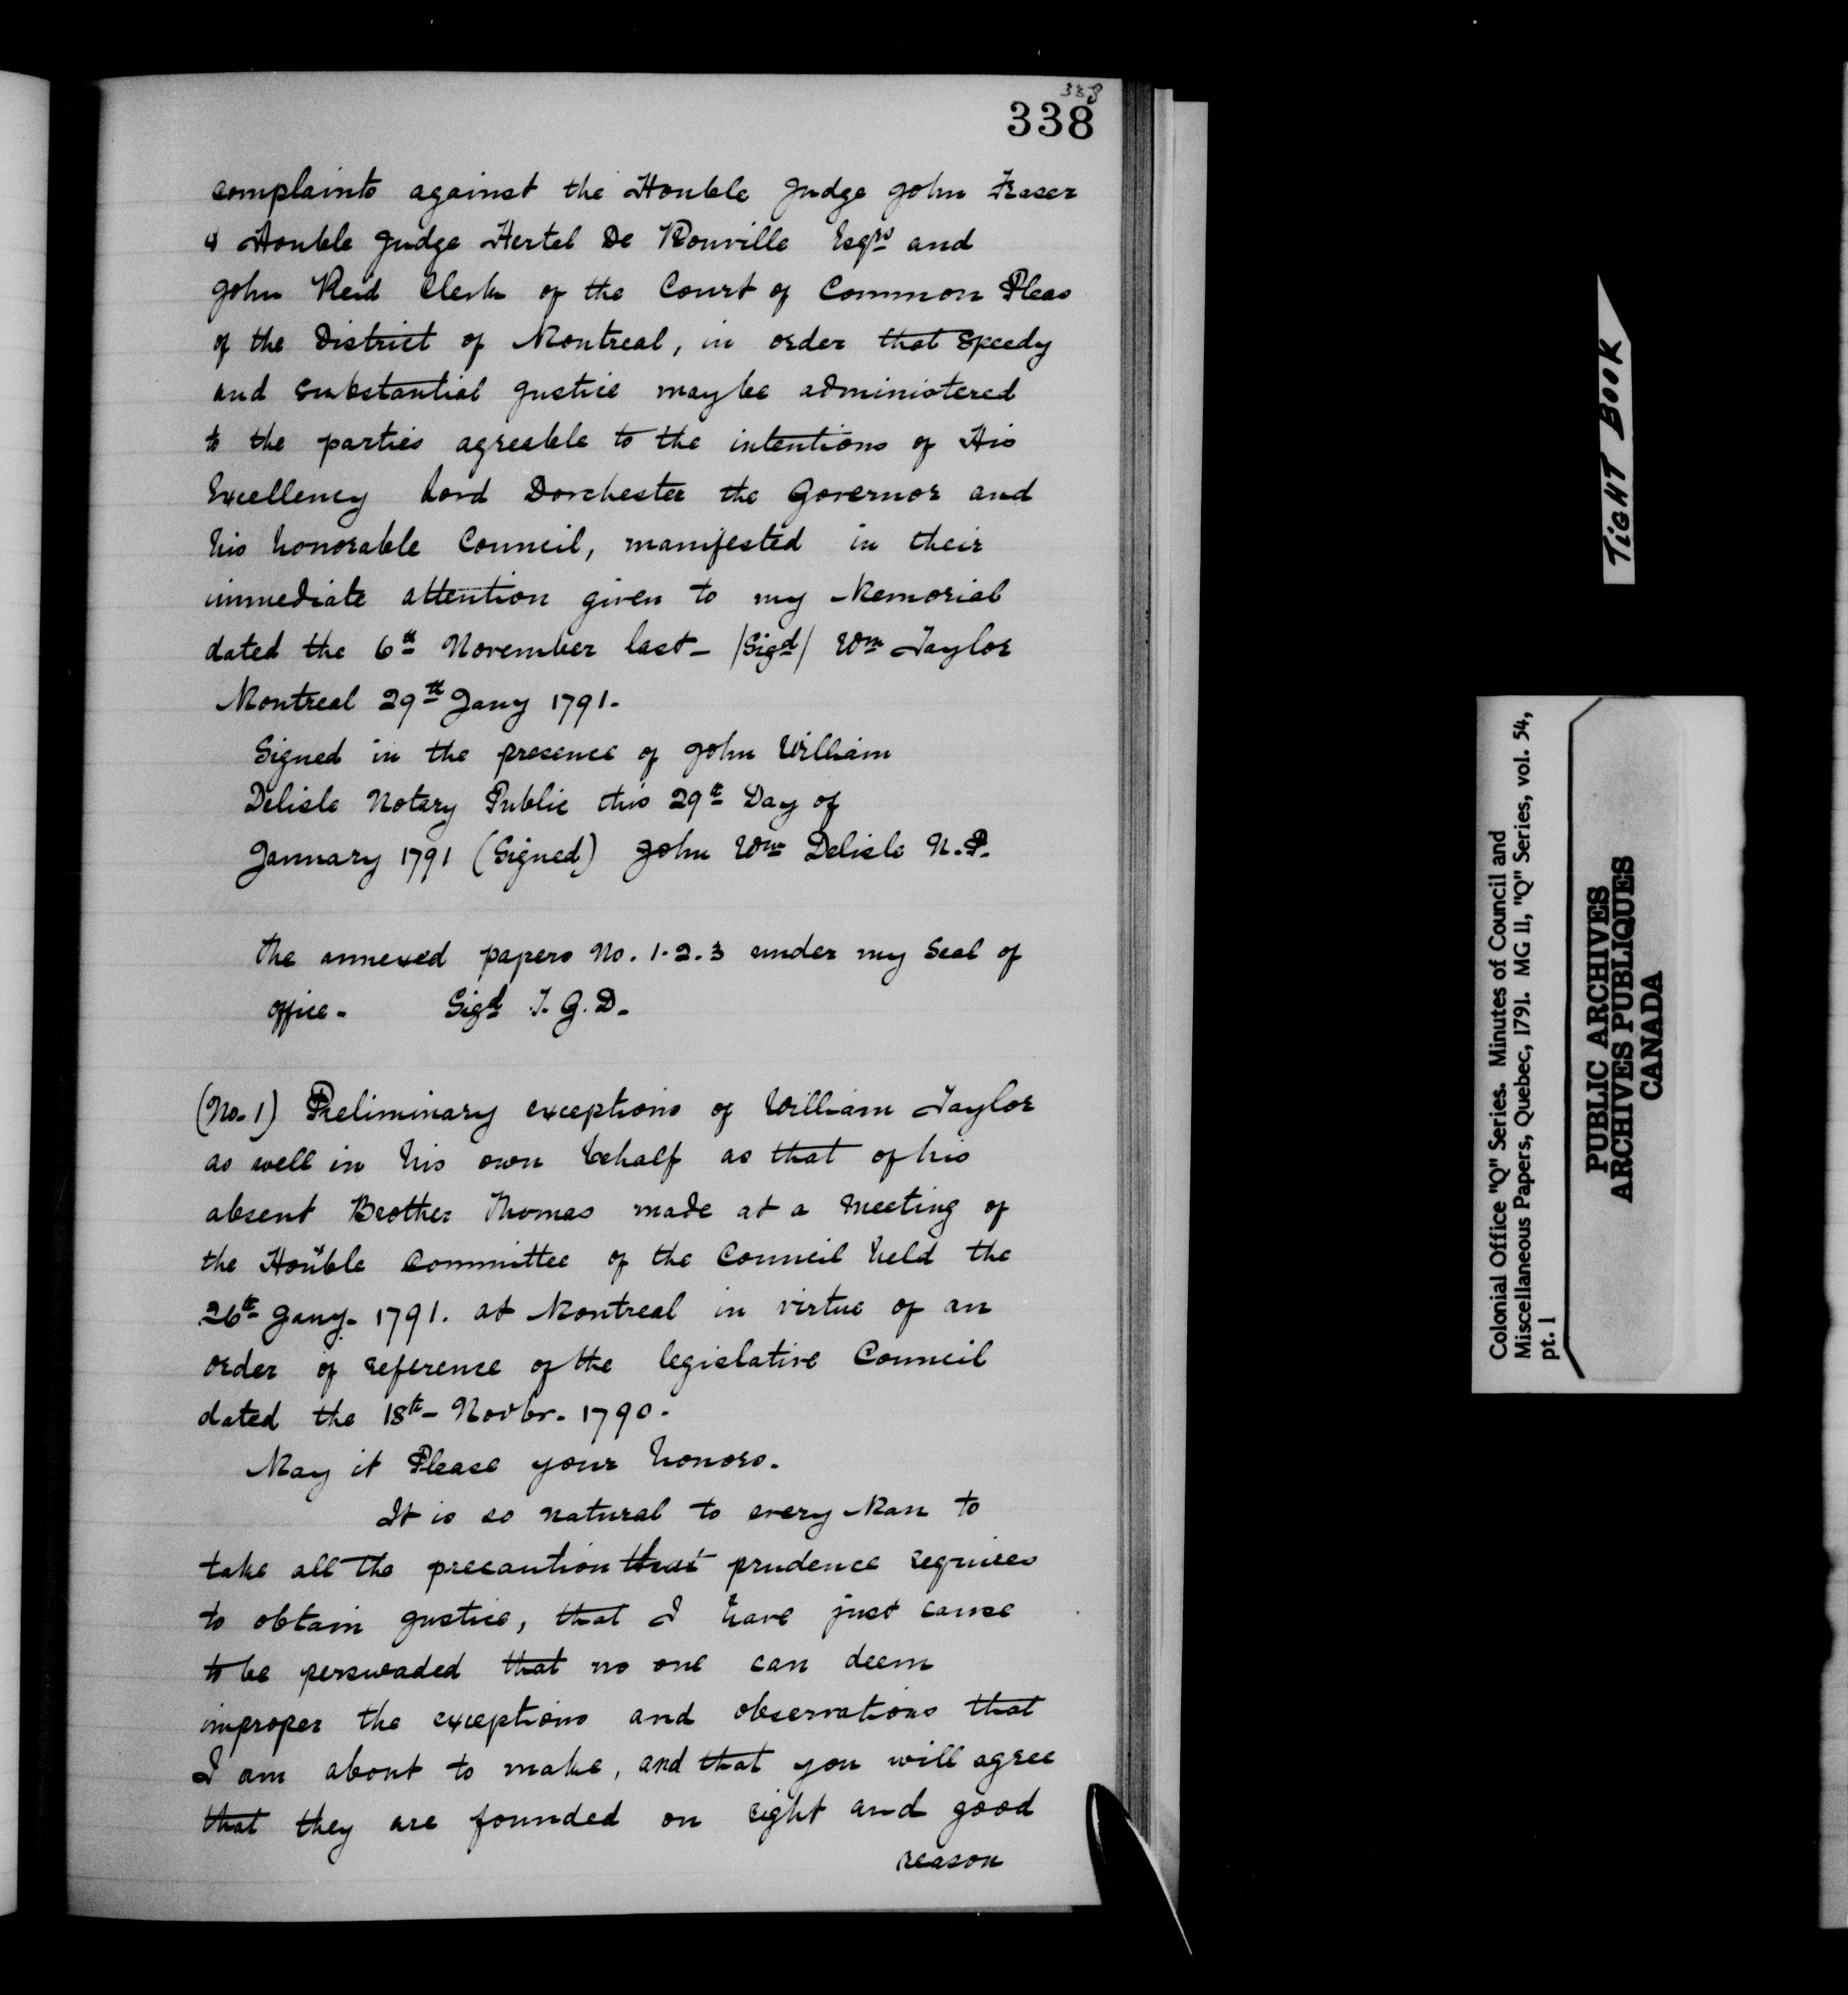 338
338
complaints against the Honble Judge John Fraser
& Honble Judge Hertel De Rouville Esqrs and
John Reid Clerk of the Court of Common Pleas
of the District of Montreal, in order that speedy
and substantial Justice may be administered
to the parties agreable to the intentions of His
Excellency Lord Dorchester the Governor and
his honorable Council, manifested in their
immediate attention given to my Memorial
dated the 6th November last - /Sigd/ Wm Taylor
Montreal 29th Jany 1791.
Signed in the presence of John William
Delisle Notary Public this 29th Day of
January 1791 (Signed) John Wm Delisle N.P.
The annexed papers No. 1.2.3 under my Seal of
office - Sigd J. G. D.
(No. 1) Preliminary exceptions of William Taylor
as well in his own behalf as that of his
absent Brother Thomas made at a Meeting of
the Honble Committee of the Council held the
26th Jany. 1791. at Montreal in virtue of an
order of reference of the legislative Council
dated the 18th - Novbr. 1790.
May it Please your honors.
It is so natural to every Man to
take all the precaution that prudence requires
to obtain Justice, that I have just cause
to be perswaded that no one can deem
improper the exceptions and observations that
I am about to make, and that you will agree
that they are founded on right and good
reason
TIGHT BOOK
Colonial Office "Q" Series. Minutes of Council and
Miscellaneous Papers, Quebec, 1791. MG 11, "Q" Series, vol. 54,
pt. 1
PUBLIC ARCHIVES
ARCHIVES PUBLIQUES
CANADA